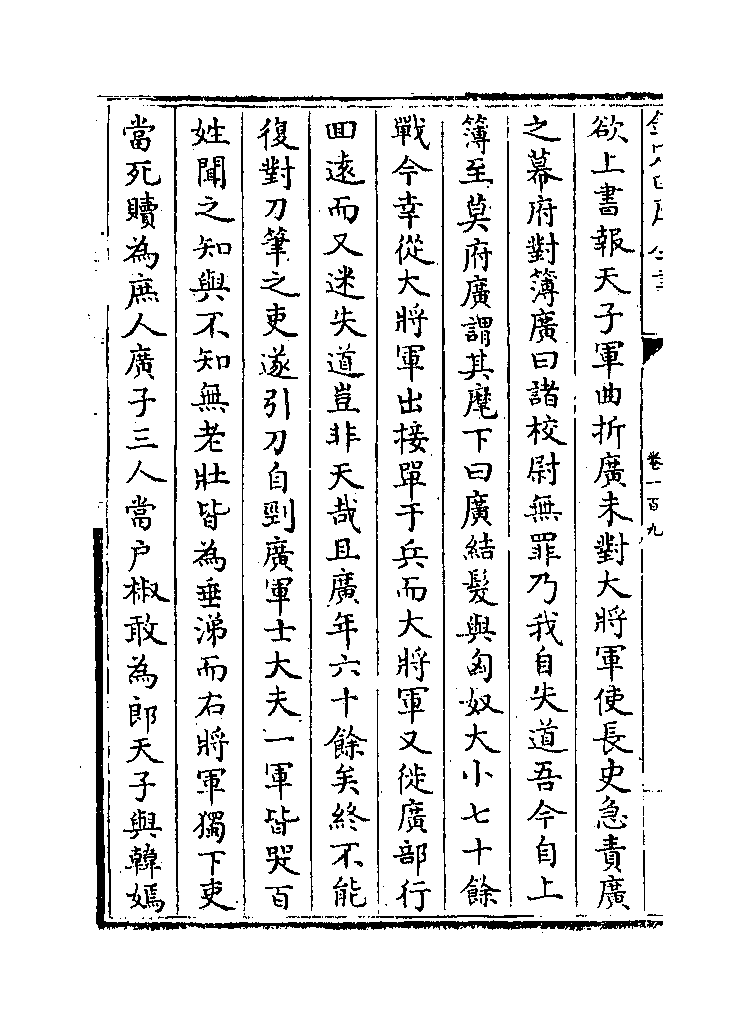 欽定四庫全書
卷一百九
欲上書報天子軍曲折廣未對大將軍使長史急責廣
之幕府對簿廣曰諸校尉無罪乃我自失道吾今自上
簿至莫府廣謂其麾下曰廣結髮與匈奴大小七十餘
戰今幸從大將軍出接單于兵而大將軍又徙廣部行
回遠而又迷失道豈非天哉且廣年六十餘矣終不能
復對刀筆之吏遂引刀自剄廣軍士大夫一軍皆哭百
姓聞之知與不知無老壯皆為垂涕而右將軍獨下吏
當死贖為庶人廣子三人當户椒敢為郎天子與韓嫣